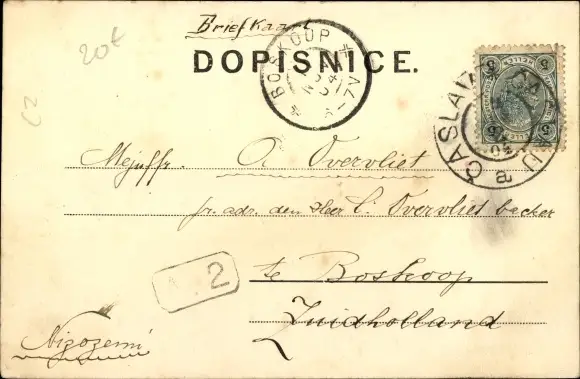 Briefkaart
20t
DOPISNICE.
BOSKOOP
ČASLAU
CZ
Mejuffr. A. Overvliet
pr. adr. den Heer C. Overvliet becker
2
te Boskoop
Zuidholland
Nizozemi